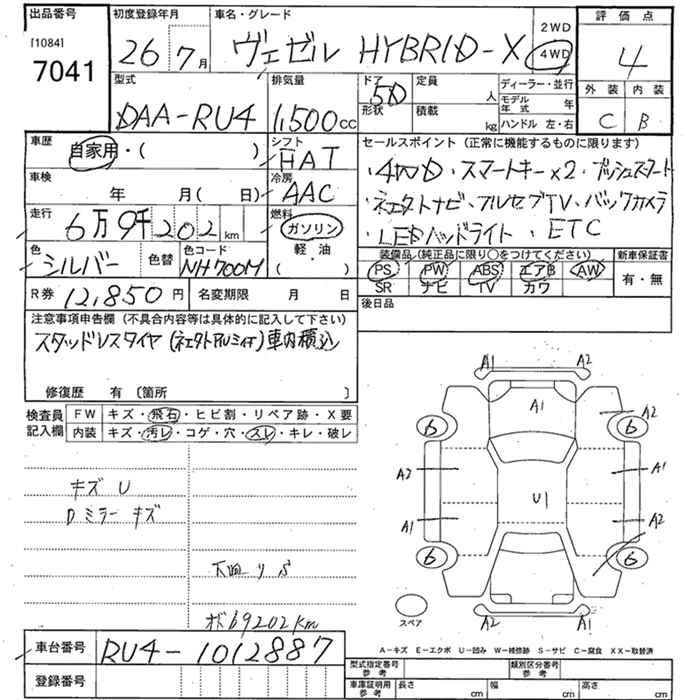 出品番号
[1084]
7041
初度登録年月 車名・グレード
26年7月 ヴェゼル HYBRID-X
2WD
4WD
評価点
4
外装 内装
C B
型式 排気量 ドア 定員 ディーラー・並行
DAA-RU4 1,500cc 5D 人 モデル年式 年
形状 積載 kg ハンドル 左・右
車歴 シフト セールスポイント (正常に機能するものに限ります)
自家用・( ) FAT
・4WD ・スマートキー×2 ・プッシュスタート
車検 冷房
年 月( 日) AAC
・ナビ・フルセグTV・バックカメラ
・LEDヘッドライト・ETC
走行 燃料
6万9千202km ガソリン
軽・油
( )
色 色替 色コード
シルバー NH700M
装備品(純正品に限り○をつけてください) 新車保証書
PS PW ABS エアB AW 有・無
SR ナビ TV カワ
R券 12,850円 名変期限 月 日
後日品
注意事項申告欄 (不具合内容等は具体的に記入して下さい)
スタッドレスタイヤ 車内積込
修復歴 有〔箇所 〕
検査員記入欄
FW キズ・飛石・ヒビ割・リペア跡・X要
内装 キズ・汚レ・コゲ・穴・スレ・キレ・破レ
キズ U
Dミラー キズ
下廻り S
69202km
A1 A2
A1 A2
6 6
A2 U1 A1
A1 A2
6 6
スペア A2 A1
A-キズ E-エクボ U-凹み W-補修跡 S-サビ C-腐食 XX-取替済
車台番号 RU4-1012887
登録番号
型式指定番号 参考 類別区分番号 参考
車庫証明用 参考 長さ cm 幅 cm 高さ cm